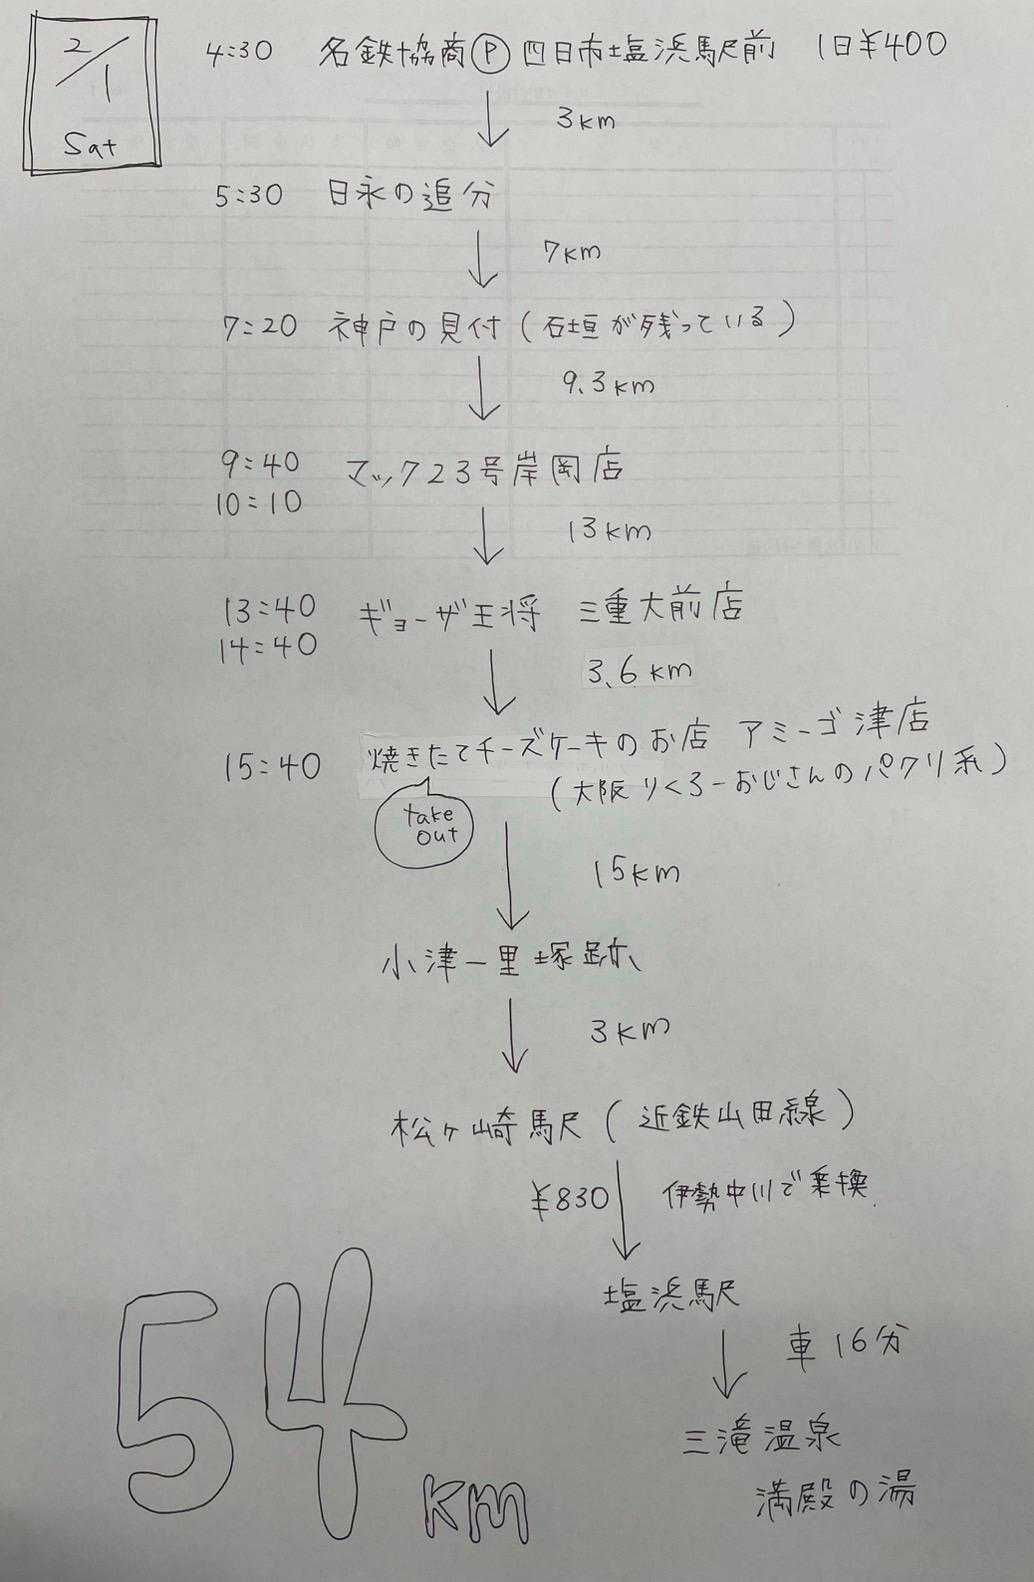 2/1
Sat
4:30 名鉄協商Ⓟ四日市塩浜駅前 1日¥400
3km
5:30 日永の追分
7km
7:20 神戸の見付(石垣が残っている)
9.3km
9:40 マック23号岸岡店
10:10
13km
13:40 ギョーザ王将 三重大前店
14:40
3.6km
15:40 焼きたてチーズケーキのお店 アミーゴ津店
(大阪りくろーおじさんのパクリ系)
take
out
15km
小津一里塚跡
3km
松ヶ崎駅(近鉄山田線)
¥830 伊勢中川で乗換
塩浜駅
車16分
三滝温泉
満殿の湯
54km